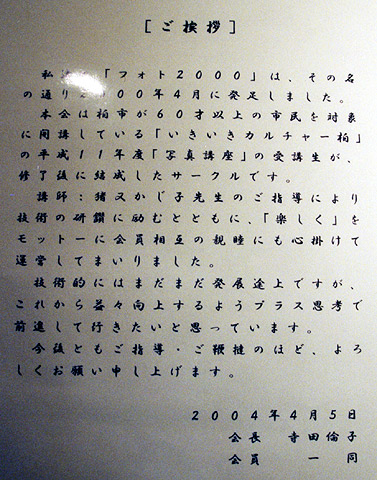 [ご挨拶]
私 「フォト2000」は、その名
の通り2 00年4月に発足しました。
本会は柏市が60才以上の市民を対象
に開講している「いきいきカルチャー柏」
の平成11年度「写真講座」の受講生が、
修了後に結成したサークルです。
講師：猪又かじ子先生のご指導により
技術の研鑽に励むとともに、「楽しく」を
モットーに会員相互の親睦にも心掛けて
運営してまいりました。
技術的にはまだまだ発展途上ですが、
これから益々向上するようプラス思考で
前進して行きたいと思っています。
今後ともご指導・ご鞭撻のほど、よろ
しくお願い申し上げます。
2004年4月5日
会長 寺田倫子
会員 一同